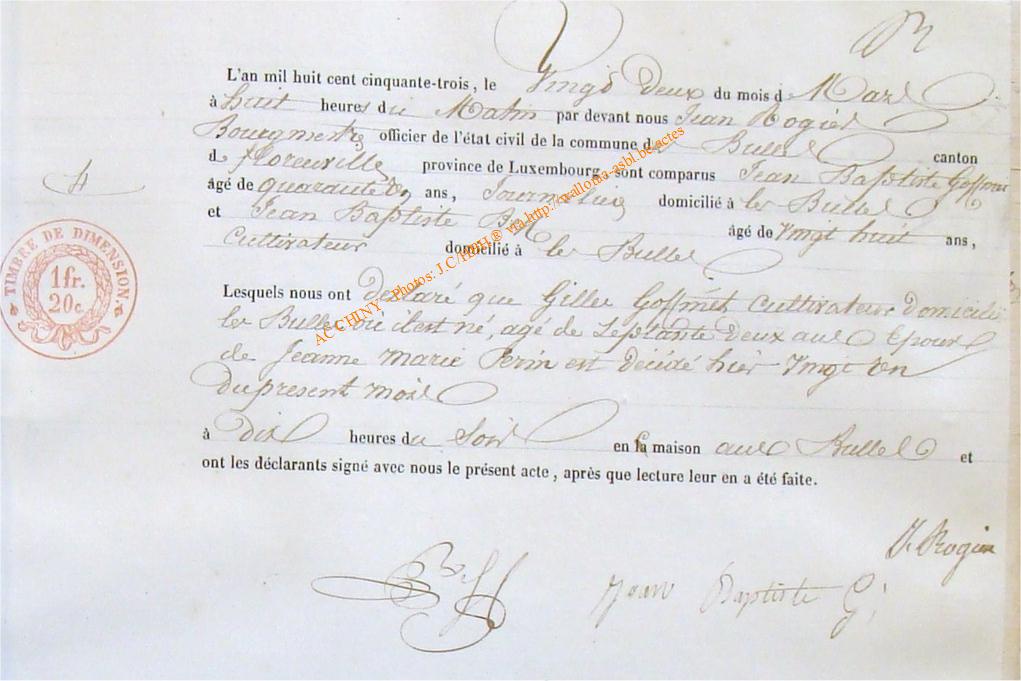 L'an mil huit cent cinquante-trois, le Vingt Deux du mois de Mars
à huit heures du Matin par devant nous Jean Rogier
Bourgmestre officier de l'état civil de la commune de Bulles canton
de florenville province de Luxembourg, sont comparus Jean Baptiste Goffinet
âgé de quarante un ans, Journalier domicilié à les Bulles
et Jean Baptiste âgé de Vingt huit ans,
Cultivateur domicilié à les Bulles
Lesquels nous ont Déclaré que Gille Goffinet Cultivateur Domicilié
les Bulles ou il est né, agé de Septante Deux ans Epoux
de Jeanne Marie Perin est Décédé hier Vingt un
du présent mois
à Dix heures du Soir en la maison aux Bulles et
ont les déclarants signé avec nous le présent acte, après que lecture leur en a été faite.
J. Rogier
Jean Baptiste G
4
TIMBRE DE DIMENSION.
1 fr.
20 c.
AC CHINY - Photos: J.C/HBH® via-http://wallonia-asbl.be.actes